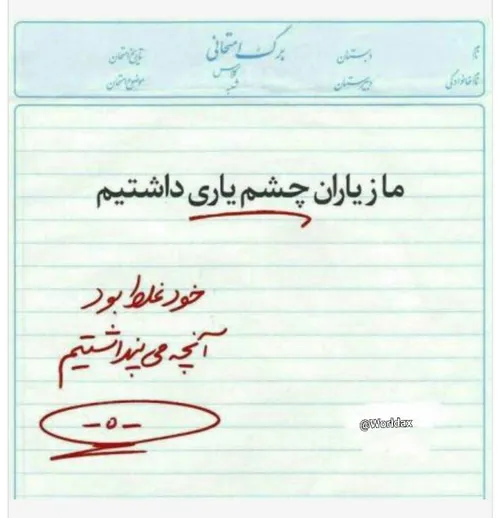 نام دبستان برگ امتحانی تاریخ امتحان
نام خانوادگی دبیرستان کلاس موضوع امتحان
شعبه
ما ز یاران چشم یاری داشتیم
خود غلط بود
آنچه می پنداشتیم
-۰-
@Worldax